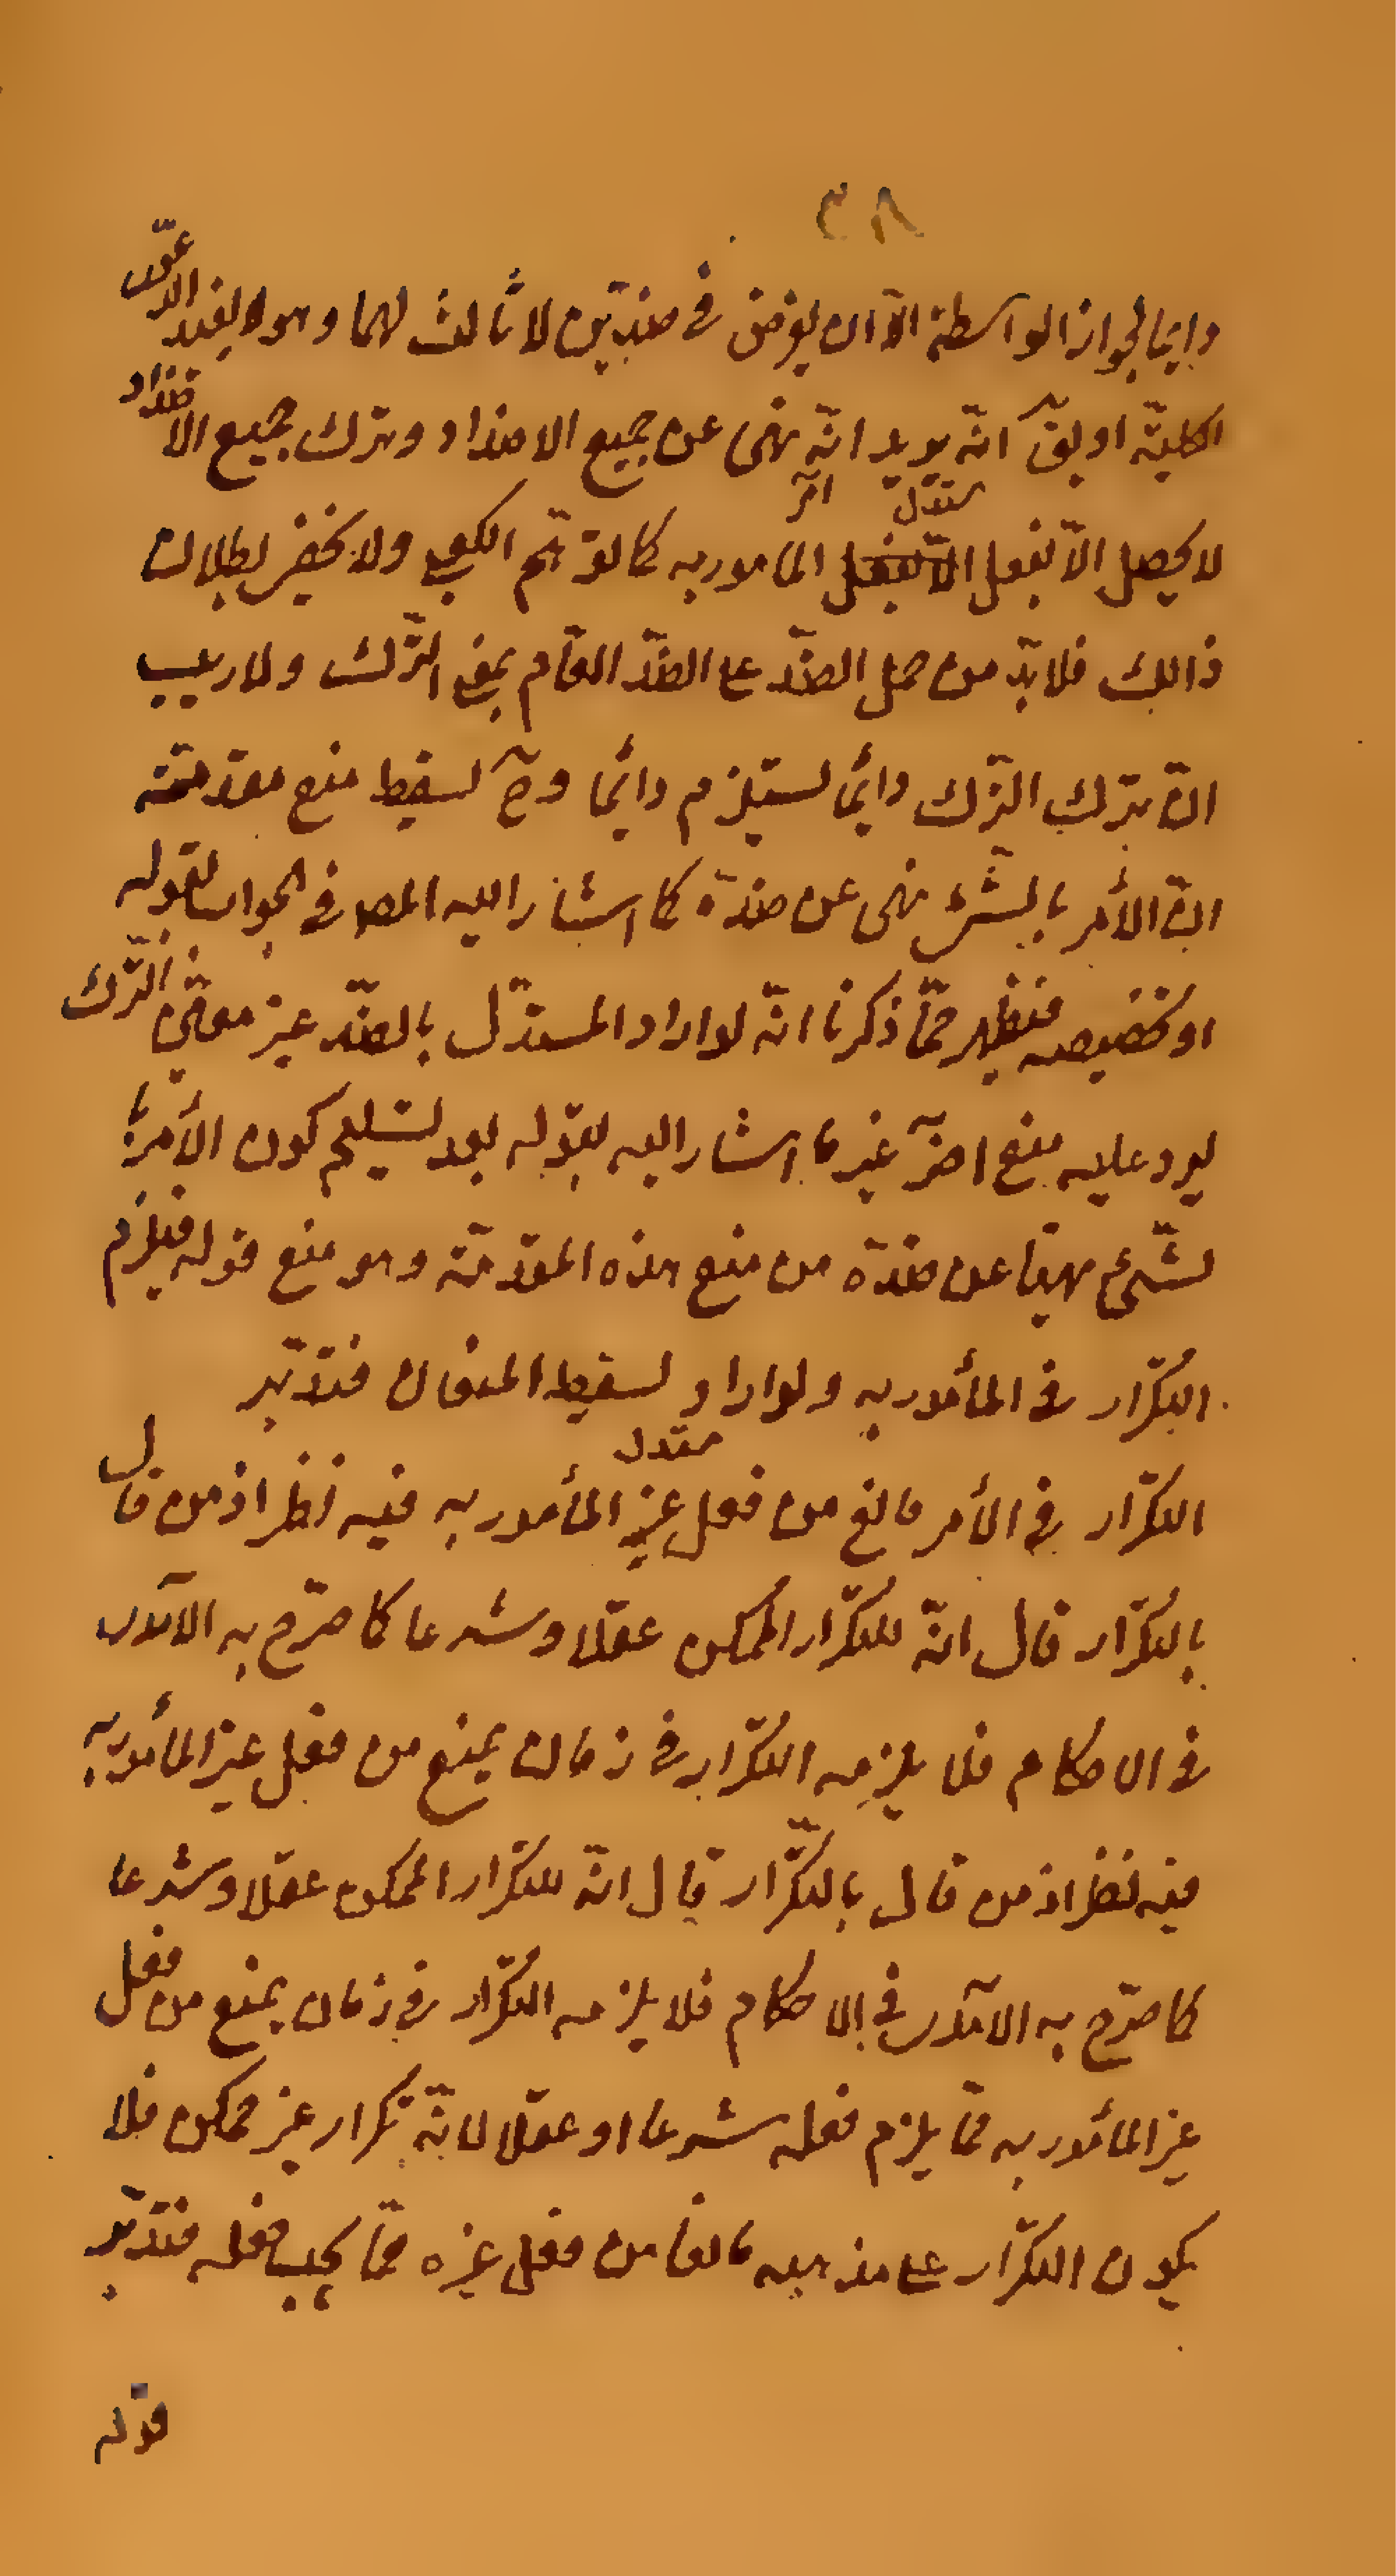 ٣٨
دايما لجواز الواسطة الّا ان يفرض في ضدّين لا ثالث لهما وهو لا يفيد الدعوى
الكليّة او يقٓ انّه يريد انّه نهى عن جميع الاضداد وترك جميع الاضداد
لا يحصل الّا بفعل المأمور به كما توهّم الكعبي ولا يخفى بطلان
ذالك فلا بدّ من حمل الضّد على الضّد العآم بمعنى التّرك ولا ريب
انّ ترك التّرك دائما يستلزم دائما وحٓ يسقط منع مقدّمته
انّ الأمر بالشّئ نهى عن ضدّه كما اشار اليه المصٓ في الجواب بقوله
او تخصيصه فظهر ممّا ذكرنا انّه لو اراد المستدّل بالضّد غير معنى التّرك
يرد عليه منع اخرٓ غير ما اشار اليه بقوله بعد تسليم كون الأمر با
لشّيء نهيا عن ضدّه من منع هذه المقدّمة وهو منع قوله فيلزم
التكرّار في المأمور به ولو اراد يسقط المنعان فتدبّر
التكرّار في الأمر مانع من فعل غير المأمور به فيه نظر اذ من قال
بالتكرّار قال انّه للتكرّار الممكن عقلا وشرعا كما صرّح به الآمدى
في الاحكام فلا يلزمه التكرّار في زمان يمنع من فعل غير المأمور به
فيه نظر اذ من قال بالتكرّار قال انّه للتكرّار الممكن عقلا وشرعا
كما صرّح به الآمدى في الاحكام فلا يلزمه التكرّار في زمان يمنع من فعل
غير المأمور به ممّا يلزم فعله شرعا او عقلا لانّه تكرار غير ممكن فلا
يكون التكرّار على مذهبه مانعا من فعل غيره ممّا يجب فعله فتدبّر
قوله